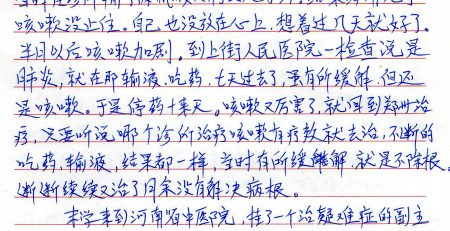 咳嗽没止住。自己也没放在心上,想着过几天就好了。
半月以后咳嗽加剧。到上街人民医院一检查说是
肺炎,就在那输液、吃药,七天过去了,虽有所缓解,但还
是咳嗽。于是停药十来天。咳嗽又厉害了,就回到郑州治
疗,只要听说哪个诊所治疗咳嗽有疗效就去治,不断的
吃药、输液,结果都一样,当时有所缓解,就是不除根。
断断续续又治了月余没有解决病根。
末学来到河南省中医院,挂了一个治疑难症的副主